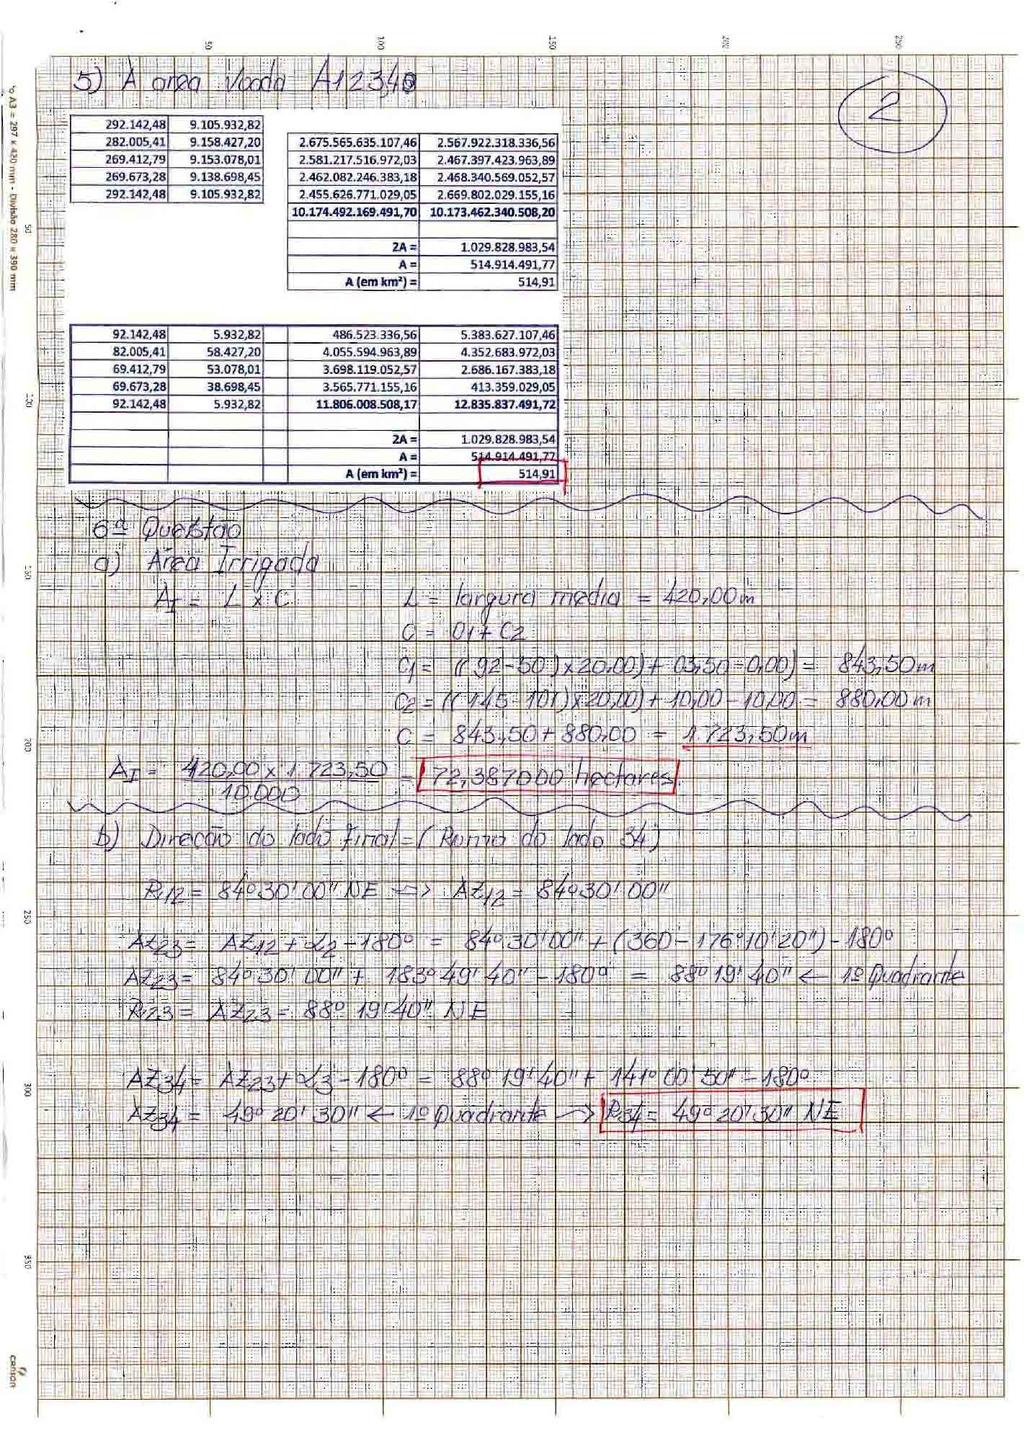 50 100 150 200 250
5) A area Voada A12340
2
292.142,48 9.105.932,82
282.005,41 9.158.427,20 2.675.565.635.107,46 2.567.922.318.336,56
269.412,79 9.153.078,01 2.581.217.516.972,03 2.467.397.423.963,89
269.673,28 9.138.698,45 2.462.082.246.383,18 2.468.340.569.052,57
292.142,48 9.105.932,82 2.455.626.771.029,05 2.669.802.029.155,16
10.174.492.169.491,70 10.173.462.340.508,20
2A = 1.029.828.983,54
A = 514.914.491,77
A (em km²) = 514,91
92.142,48 5.932,82 486.523.336,56 5.383.627.107,46
82.005,41 58.427,20 4.055.594.963,89 4.352.683.972,03
69.412,79 53.078,01 3.698.119.052,57 2.686.167.383,18
69.673,28 38.698,45 3.565.771.155,16 413.359.029,05
92.142,48 5.932,82 11.806.008.508,17 12.835.837.491,72
2A = 1.029.828.983,54
A = 514.914.491,77
A (em km²) = 514,91
6ª Questão
a) Área Irrigada
AI = L x C L = largura média = 420,00m
C = C1 + C2
C1 = ((92-50)x20,00)+03,50-0,00) = 843,50m
C2 = ((145-101)x20,00)+10,00-10,00 = 880,00m
C = 843,50 + 880,00 = 1.723,50m
AI = 420,00 x 1.723,50 = 72,387000 hectares
10.000
b) Direção do lado final = (Rumo do lado 34)
R12 = 84º30'00" NE => Az12 = 84º30'00"
Az23 = Az12 + α2 - 180º = 84º30'00" + (360 - 176º10'20") - 180º
Az23 = 84º30'00" + 183º49'40" - 180º = 88º19'40" ← 1º Quadrante
R23 = Az23 = 88º19'40" NE
Az34 = Az23 + α3 - 180º = 88º19'40" + 141º00'50" - 180º
Az34 = 49º20'30" ← 1º Quadrante => R34 = 49º20'30" NE
A3 = 297 x 420 mm - Divisão 280 x 390 mm
50
100
150
200
250
300
350
canson